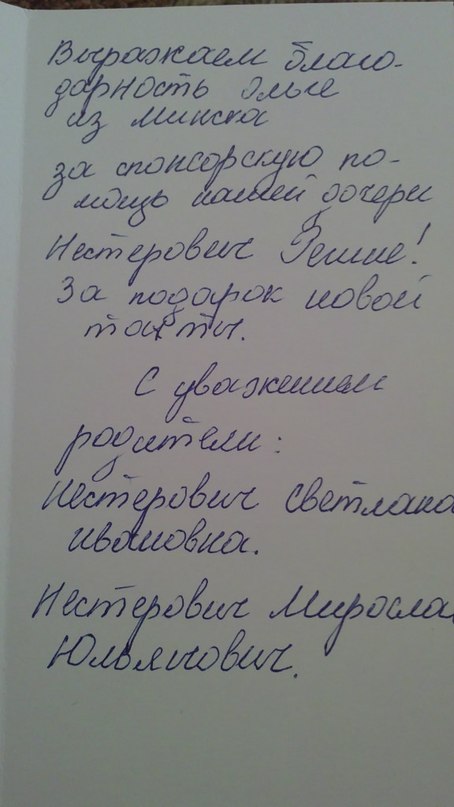 Выражаем благо-
дарность Ольге
из Минска
за спонсорскую по-
мощь нашей дочери
Нестерович !
За подарок новой
тахты.
С уважением
родители:
Нестерович Светлана
ивановна.
Нестерович Мирослав
Юльянович.